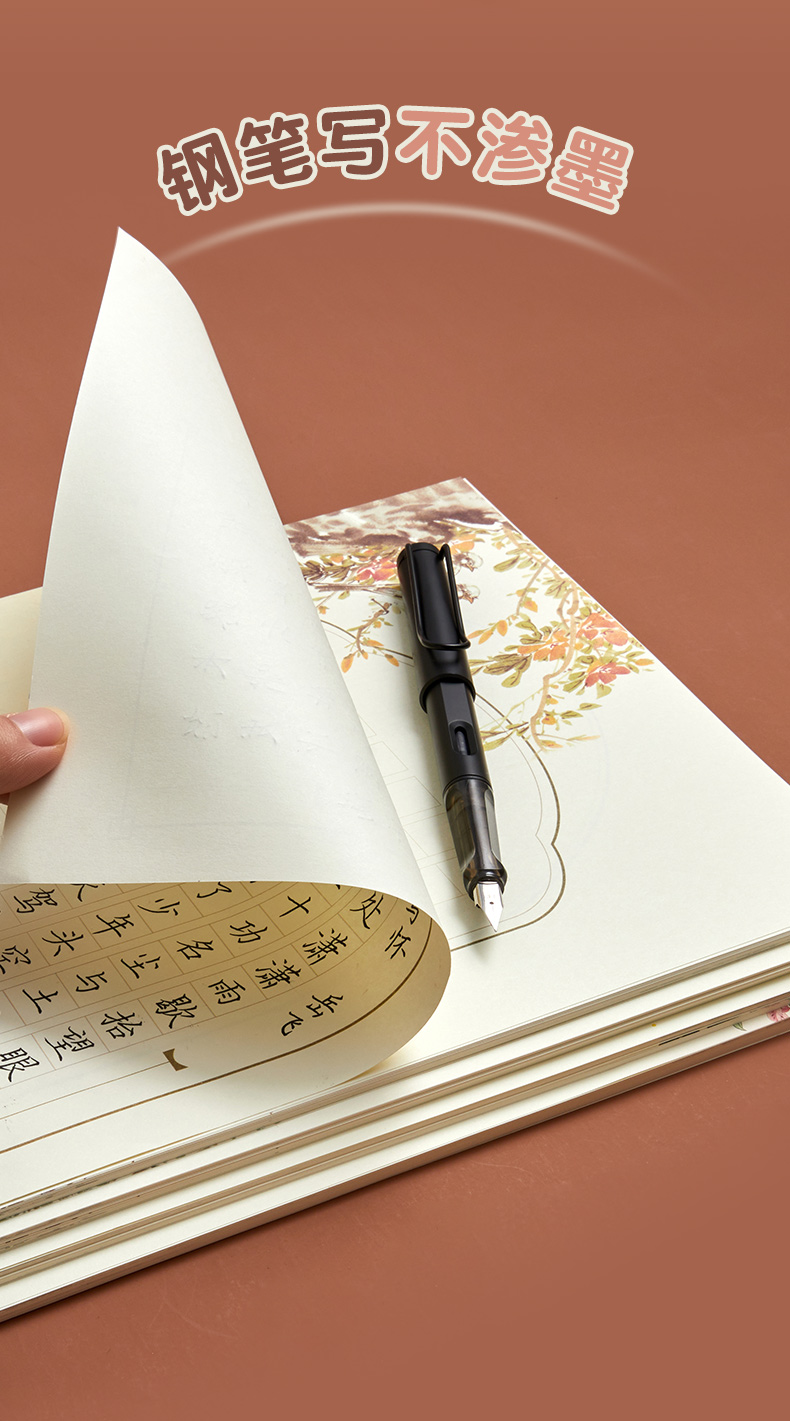 钢笔写不渗墨
写怀
岳飞
处潇潇雨歇抬望眼
十功名尘与土
了少年头空
驾